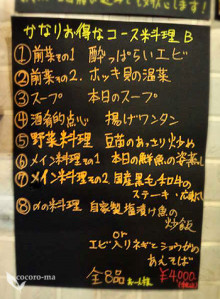 かなりお得なコース料理 B
① 前菜その1 酔っぱらいエビ
② 前菜その2. ホッキ貝の温菜
③ スープ 本日のスープ
④ 酒肴的点心 揚げワンタン
⑤ 野菜料理 豆苗のあっさり炒め
⑥ メイン料理その1 本日の鮮魚の姿蒸し
⑦ メイン料理その2 国産黒毛和牛の
ステーキ
⑧ 〆の料理 自家製塩漬け魚の
炒飯
or
エビ入りネギとショウガの
あえそば
全8品 お一人様 ¥4,000
cocoro-ma